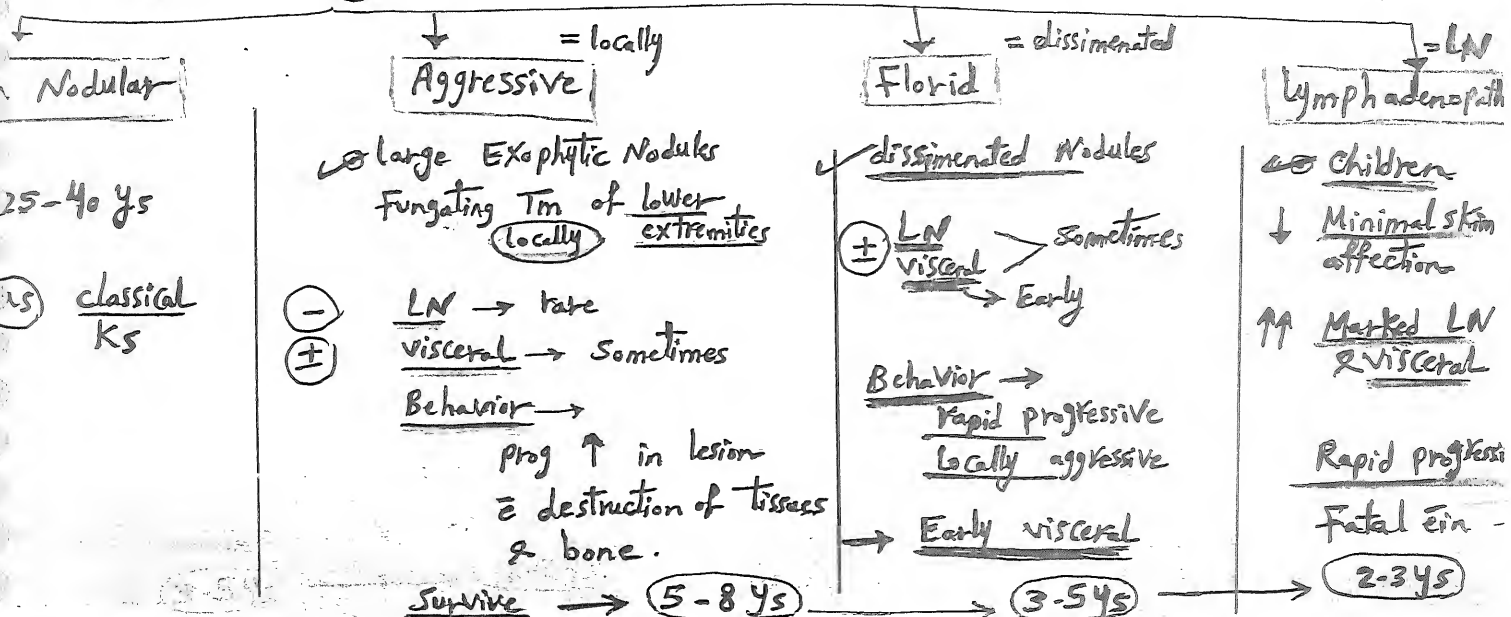 Nodular
25-40 ys
classical
KS
= locally
Aggressive
large Exophytic Nodules
Fungating Tm of lower
(locally) extremities
(-) LN → rare
(±) visceral → Sometimes
Behavior →
prog ↑ in lesion
c̄ destruction of tissues
& bone.
Survive → 5-8 ys
= dissimenated
Florid
✓ dissimenated Nodules
(±) LN
visceral
Sometimes
→ Early
Behavior →
rapid progressive
Locally aggressive
→ Early visceral
3-5 ys →
= LN
Lymphadenopath
Children
↓ Minimal skin
affection
↑↑ Marked LN
& visceral
Rapid progressi
Fatal ein -
2-3 ys